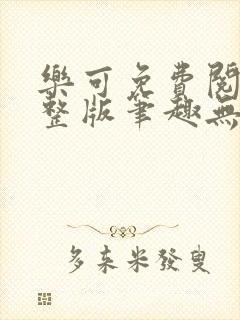 樂可免費閱
整版筆趣無
多來米發叟